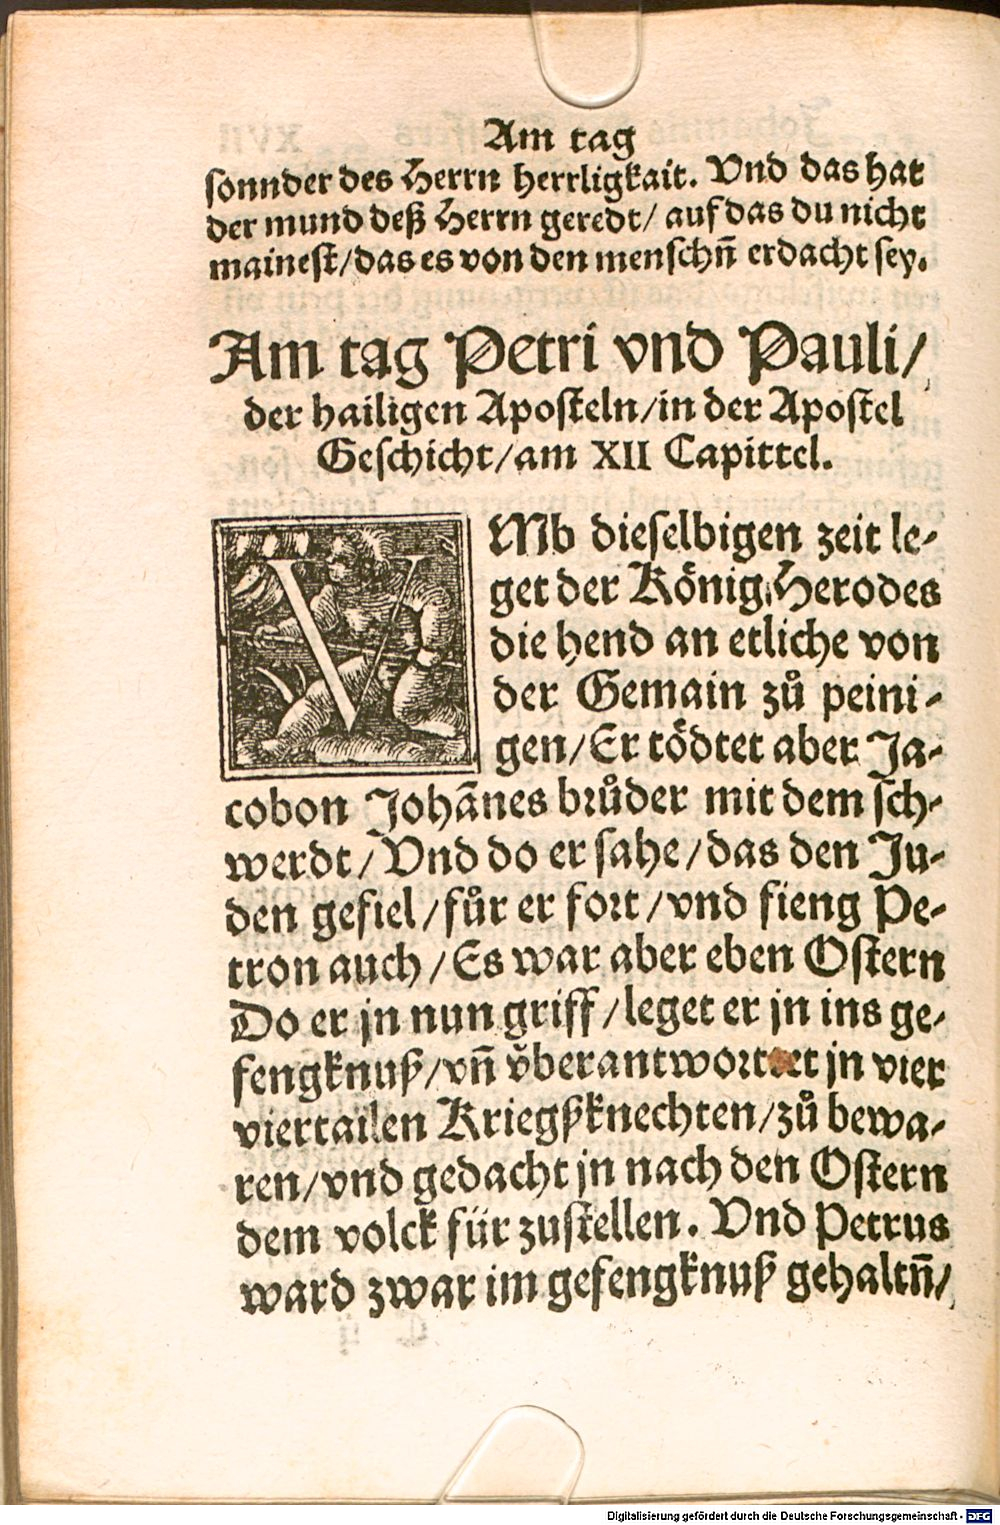 Am tag
sonnder des Herrn herrligkait. Vnd das hat
der mund deß Herrn geredt/ auf das du nicht
mainest/das es von den menschn̄ erdacht sey.
Am tag Petri vnd Pauli/
der hailigen Aposteln/in der Apostel
Geschicht/am XII Capittel.
VMb dieselbigen zeit le-
get der König Herodes
die hend an etliche von
der Gemain zů peini-
gen/Er tödtet aber Ja-
cobon Johānes brůder mit dem sch-
werdt/Vnd do er sahe/das den Ju-
den gefiel/fůr er fort/vnd fieng Pe-
tron auch/Es war aber eben Ostern
Do er jn nun griff/leget er jn ins ge-
fengknuß/vn̄ v̈berantwortet jn vier
viertailen Kriegßknechten/zů bewa-
ren/vnd gedacht jn nach den Ostern
dem volck für zustellen. Vnd Petrus
ward zwar im gefengknuß gehaltn̄/
Digitalisierung gefördert durch die Deutsche Forschungsgemeinschaft - DFG